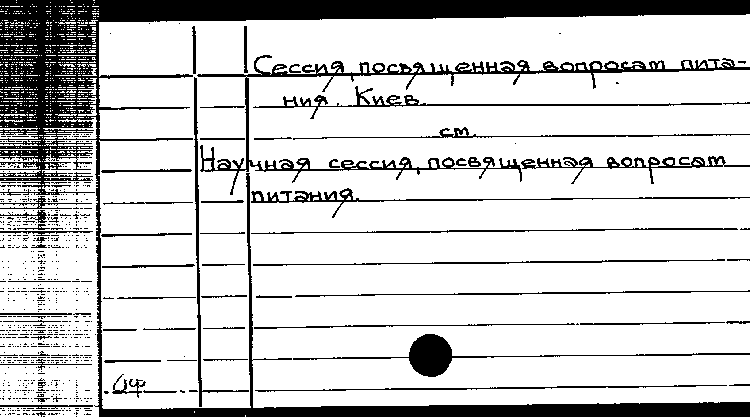 Сессия, посвященная вопросам пита-
ния. Киев.
см.
Научная сессия, посвященная вопросам
питания.